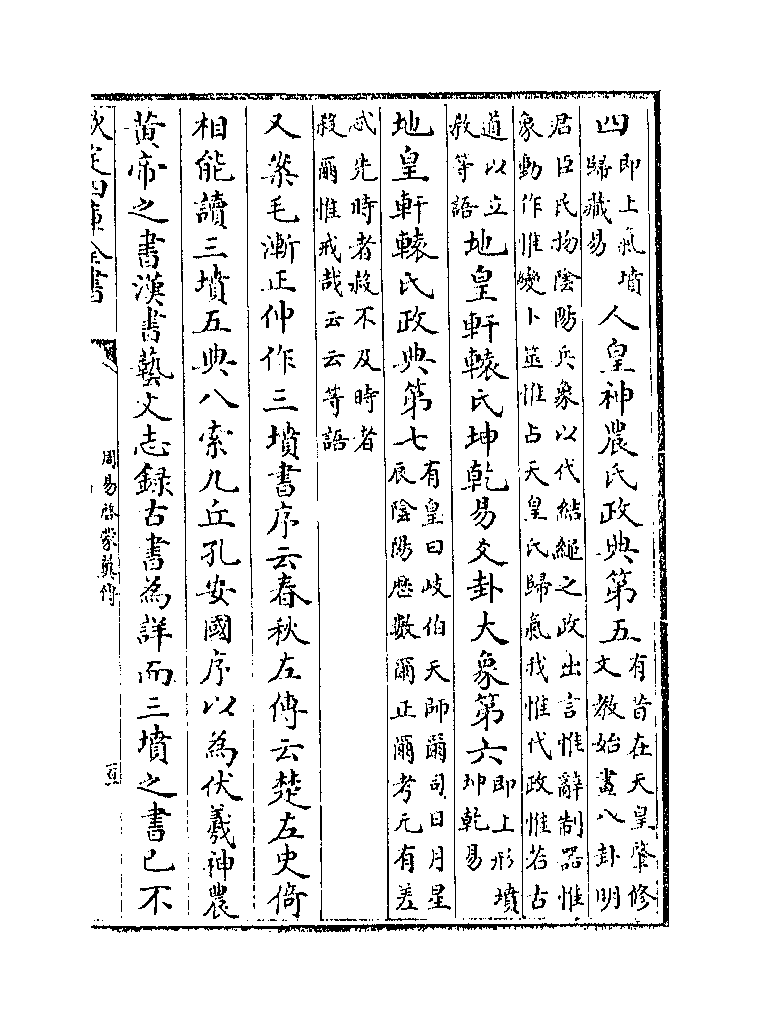 四即上氣墳歸藏易人皇神農氏政典第五有昔在天皇肇修文教始畫八卦明
君臣民物陰陽兵象以代結繩之政出言惟辭制器惟象動作惟變卜筮惟占天皇氏歸氣我惟代政惟若古
道以立教等語地皇軒轅氏坤乾易爻卦大象第六即上形墳坤乾易
地皇軒轅氏政典第七有皇曰岐伯天師爾司日月星辰陰陽歷數爾正爾考元有差
忒先時者殺不及時者殺爾惟戒哉云云等語
又案毛漸正仲作三墳書序云春秋左傳云楚左史倚
相能讀三墳五典八索九丘孔安國序以為伏羲神農
黃帝之書漢書藝文志録古書為詳而三墳之書已不
欽定四庫全書
周易啓蒙翼傳